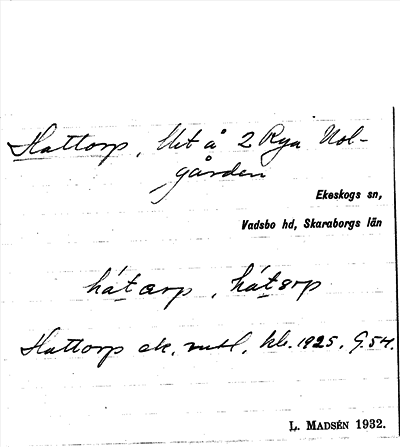 Hattorp, Ut å 2 Rya Nol-
gården
Ekeskogs sn,
Vadsbo hd, Skaraborgs län
hátærp, hátərp
Hattorp ek. hb. 1925, G.54.
L. MADSÉN 1932.